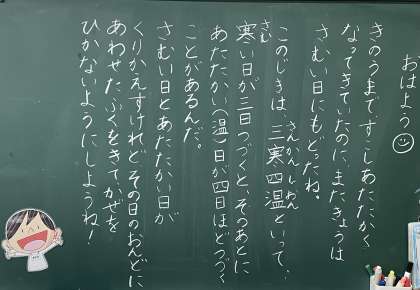 おはよう
きのうまですこしあたたかく
なってきていたのに、またきょうは
さむい日にもどったね。
このじきは、三寒四温といって、
さんかんしおん
寒い日が三日つづくと、そのあとに
さむ
あたたかい(温)日が四日ほどつづく
ことがあるんだ。
さむい日とあたたかい日が
くりかえすけれど、その日のおんどに
あわせたふくをきてかぜを
ひかないようにしようね!